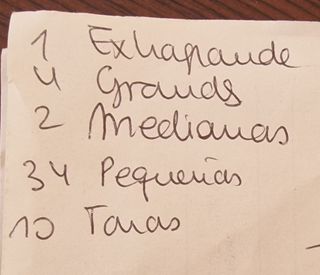 1 Extragrande
4 Grandes
2 Medianas
34 Pequeñas
10 Taras